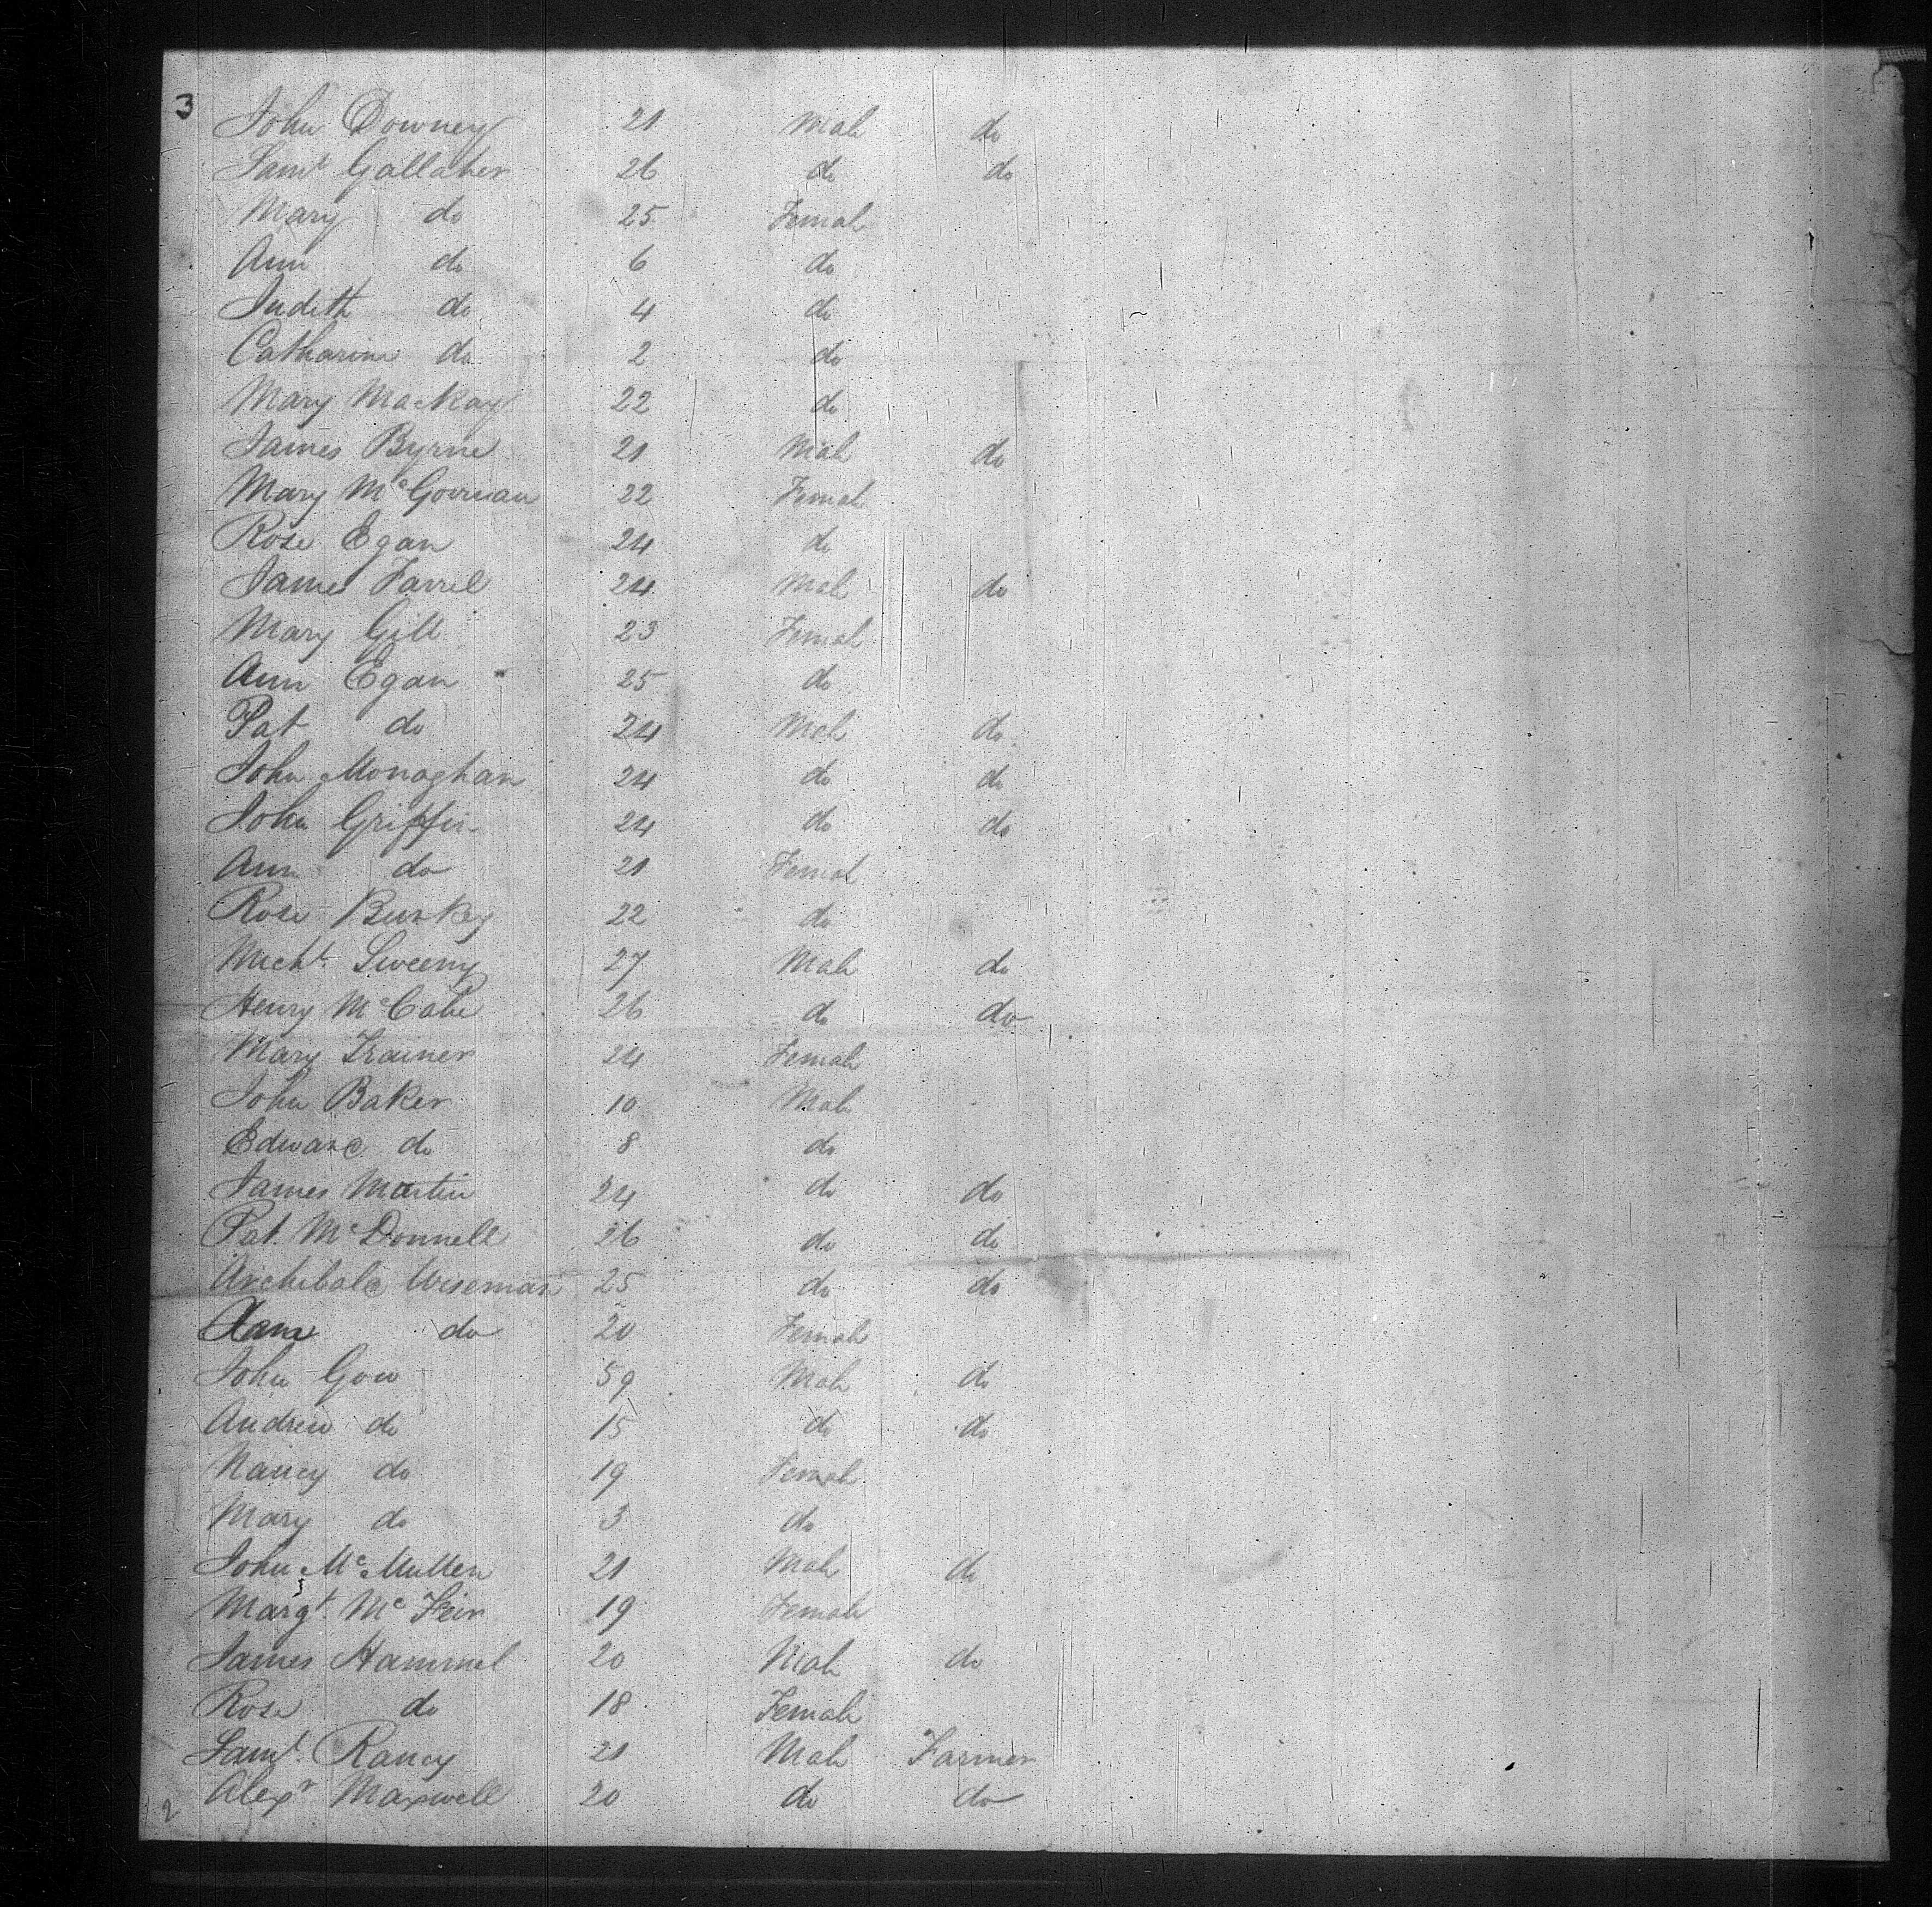 3 John Downey 21 Male do
Saml Gallaher 26 do do
Mary do 25 Female
Ann do 6 do
Judith do 4 do
Catharine do 2 do
Mary MacKay 22 do
James Byrne 21 Male do
Mary McGovrnan 22 Female
Rose Egan 24 do
James Farrel 24 Male do
Mary Gill 23 Female
Ann Egan 25 do
Pat do 24 Male do
John Monaghan 24 do do
John Griffin 24 do do
Ann do 21 Female
Rose 22 do
Michl. Sweeny 27 Male do
Henry McCabe 26 do do
Mary Trainer 24 Female
John Baker 10 Male
Edward do 8 do
James Martin 24 do do
Pat. McDonnell 26 do do
Archibald Wiseman 25 do do
do 20 Female
John Gow 59 Male do
Andrew do 15 do do
Nancy do 19 Female
Mary do 3 do
John McMullen 21 Male do
Margt. Mc 19 Female
James Hammel 20 Male do
Rose do 18 Female
Saml. Raney 21 Male Farmer
2 Alexr Maxwell 20 do do